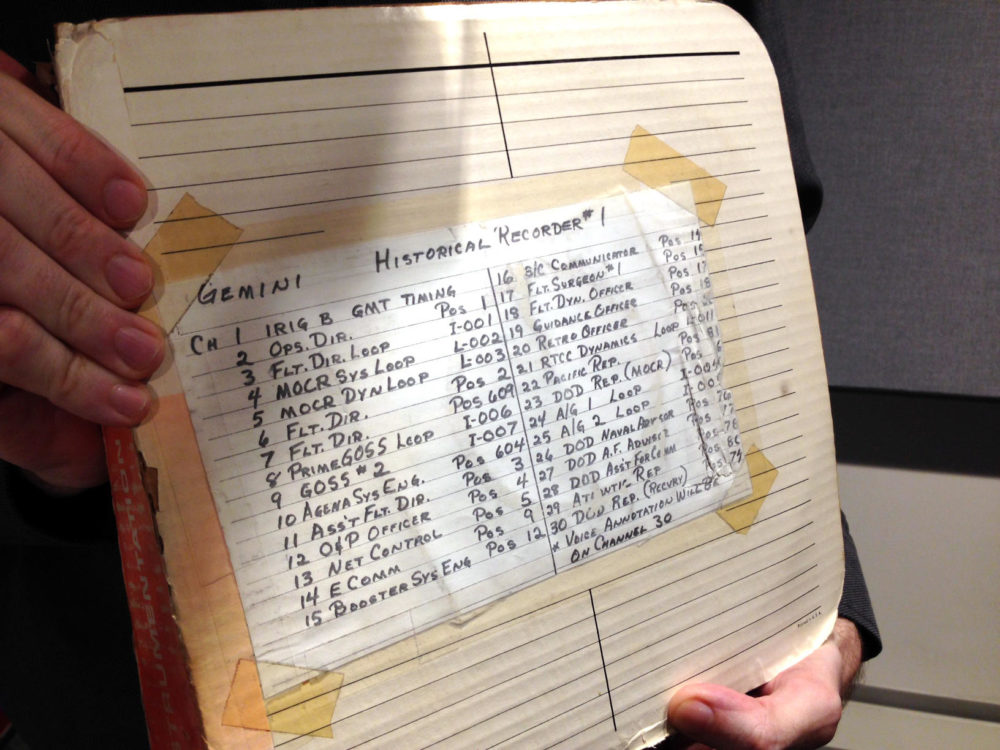 GEMINI HISTORICAL RECORDER #1
CH 1 IRIG B GMT TIMING
2 OPS. DIR. Pos 1
3 FLT. DIR. LOOP I-001
4 MOCR SYS LOOP L-002
5 MOCR DYN LOOP L-003
6 FLT. DIR. Pos 2
7 FLT. DIR. Pos 609
8 PRIME GOSS LOOP I-006
9 GOSS #2 I-007
10 AGENA SYS ENG. Pos 604
11 ASS'T FLT. DIR. Pos 3
12 O&P OFFICER Pos 4
13 NET CONTROL Pos 5
14 E COMM Pos 9
15 BOOSTER SYS ENG Pos 12
16 S/C COMMUNICATOR Pos 14
17 FLT. SURGEON #1 Pos
18 FLT. DYN. OFFICER Pos 17
19 GUIDANCE OFFICER Pos 18
20 RETRO OFFICER Pos
21 RTCC DYNAMICS LOOP L-011
22 PACIFIC REP. Pos 81
23 DOD REP. (MOCR) Pos
24 A/G 1 LOOP
25 A/G 2 LOOP
26 DOD NAVAL ADVISOR Pos 76
27 DOD A.F. ADVISOR Pos 77
28 DOD ASS'T FOR COMM Pos 78
29 REP Pos
30 DOD REP. (RECVRY) Pos
* VOICE ANNOTATION WILL BE
ON CHANNEL 30